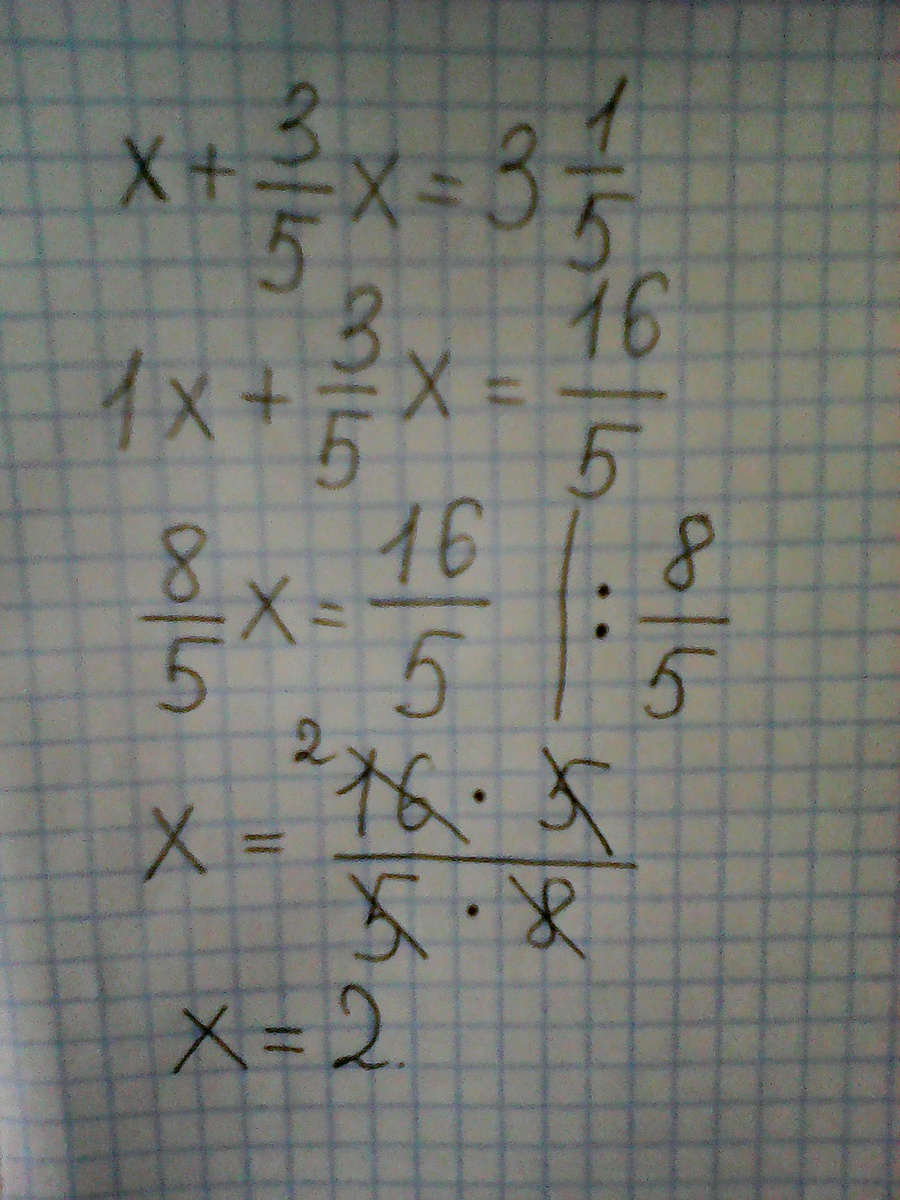 x + 3/5 x = 3 1/5
1x + 3/5 x = 16/5
8/5 x = 16/5 | : 8/5
x = 2 16 · 5 / 5 · 8
x = 2.